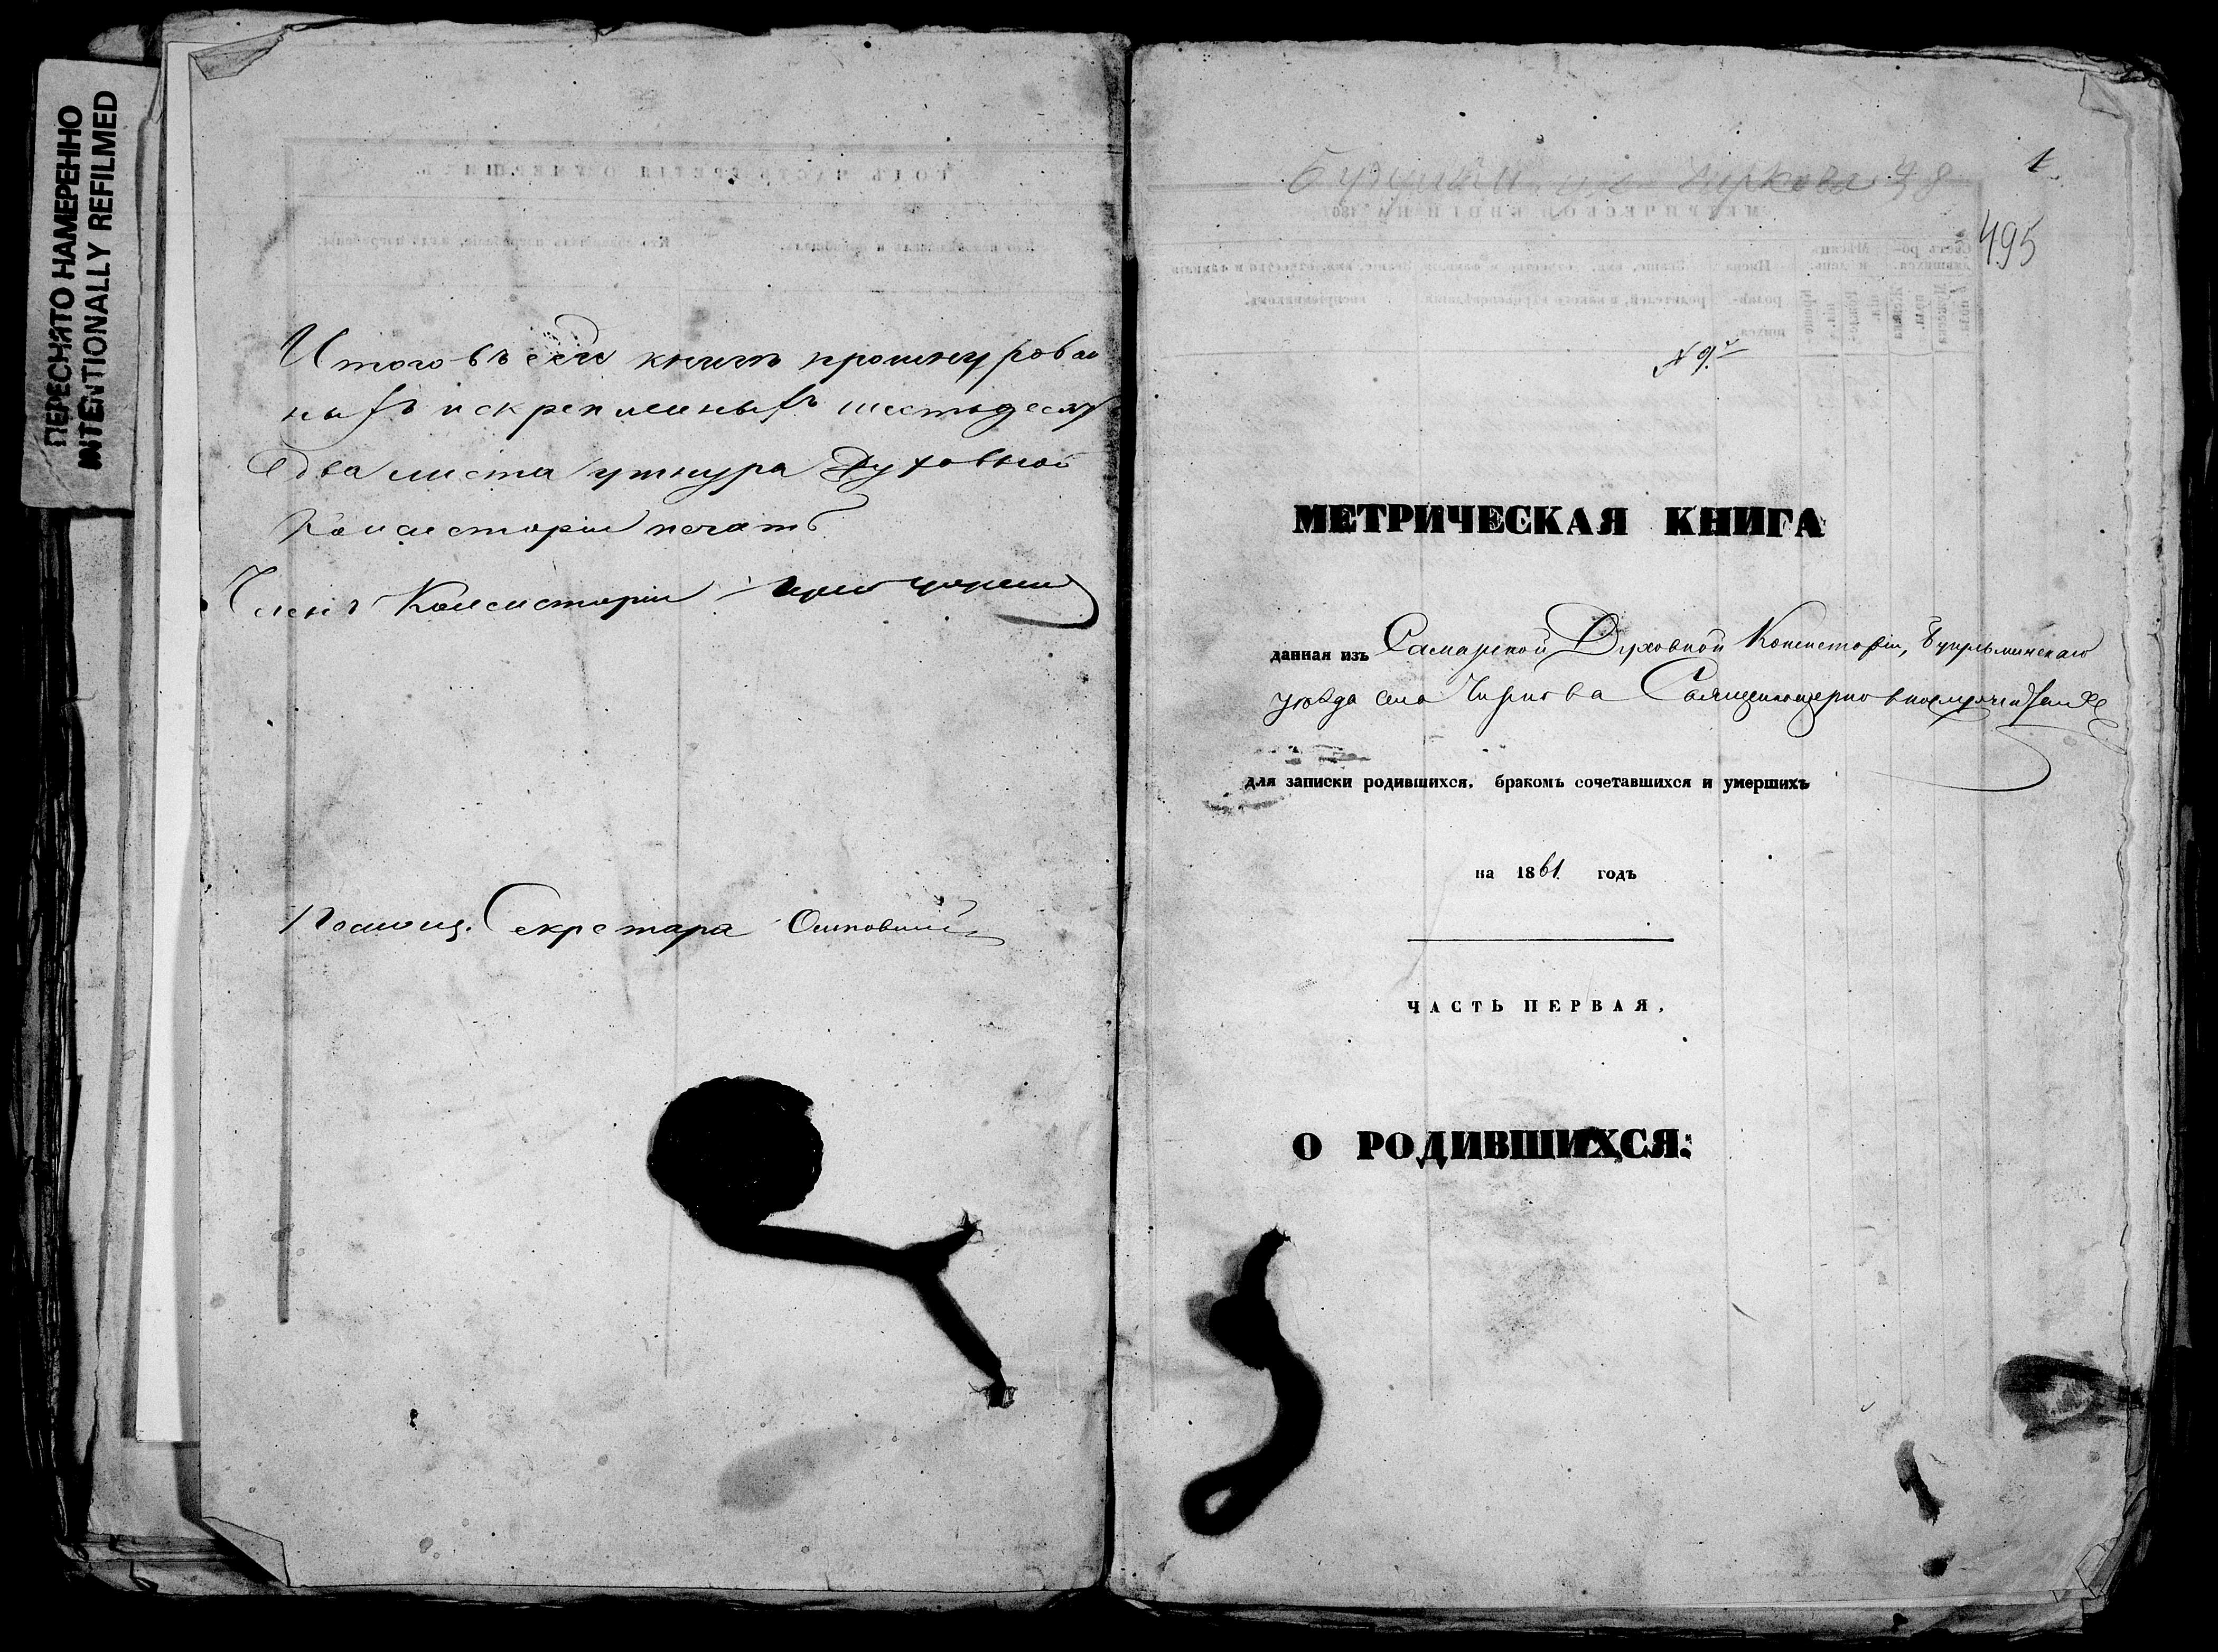 ПЕРЕСНЯТО НАМЕРЕННО
INTENTIONALLY REFILMED
Итого въ сей книгѣ прошнурован
ныхъ и скрепленныхъ шестьдесятъ
два листа у шнура Духовной
Консисторіи печать
Членъ Консисторіи
Помощ. Секретара
1
495
№ 9й
МЕТРИЧЕСКАЯ КНИГА
данная изъ Самарской Духовной Консисторіи, Бугульминскаго
уѣзда села Чиркова Священноцерковнослужителямъ
для записки родившихся, бракомъ сочетавшихся и умершихъ
на 1861 годъ
ЧАСТЬ ПЕРВАЯ.
О РОДИВШИХСЯ: